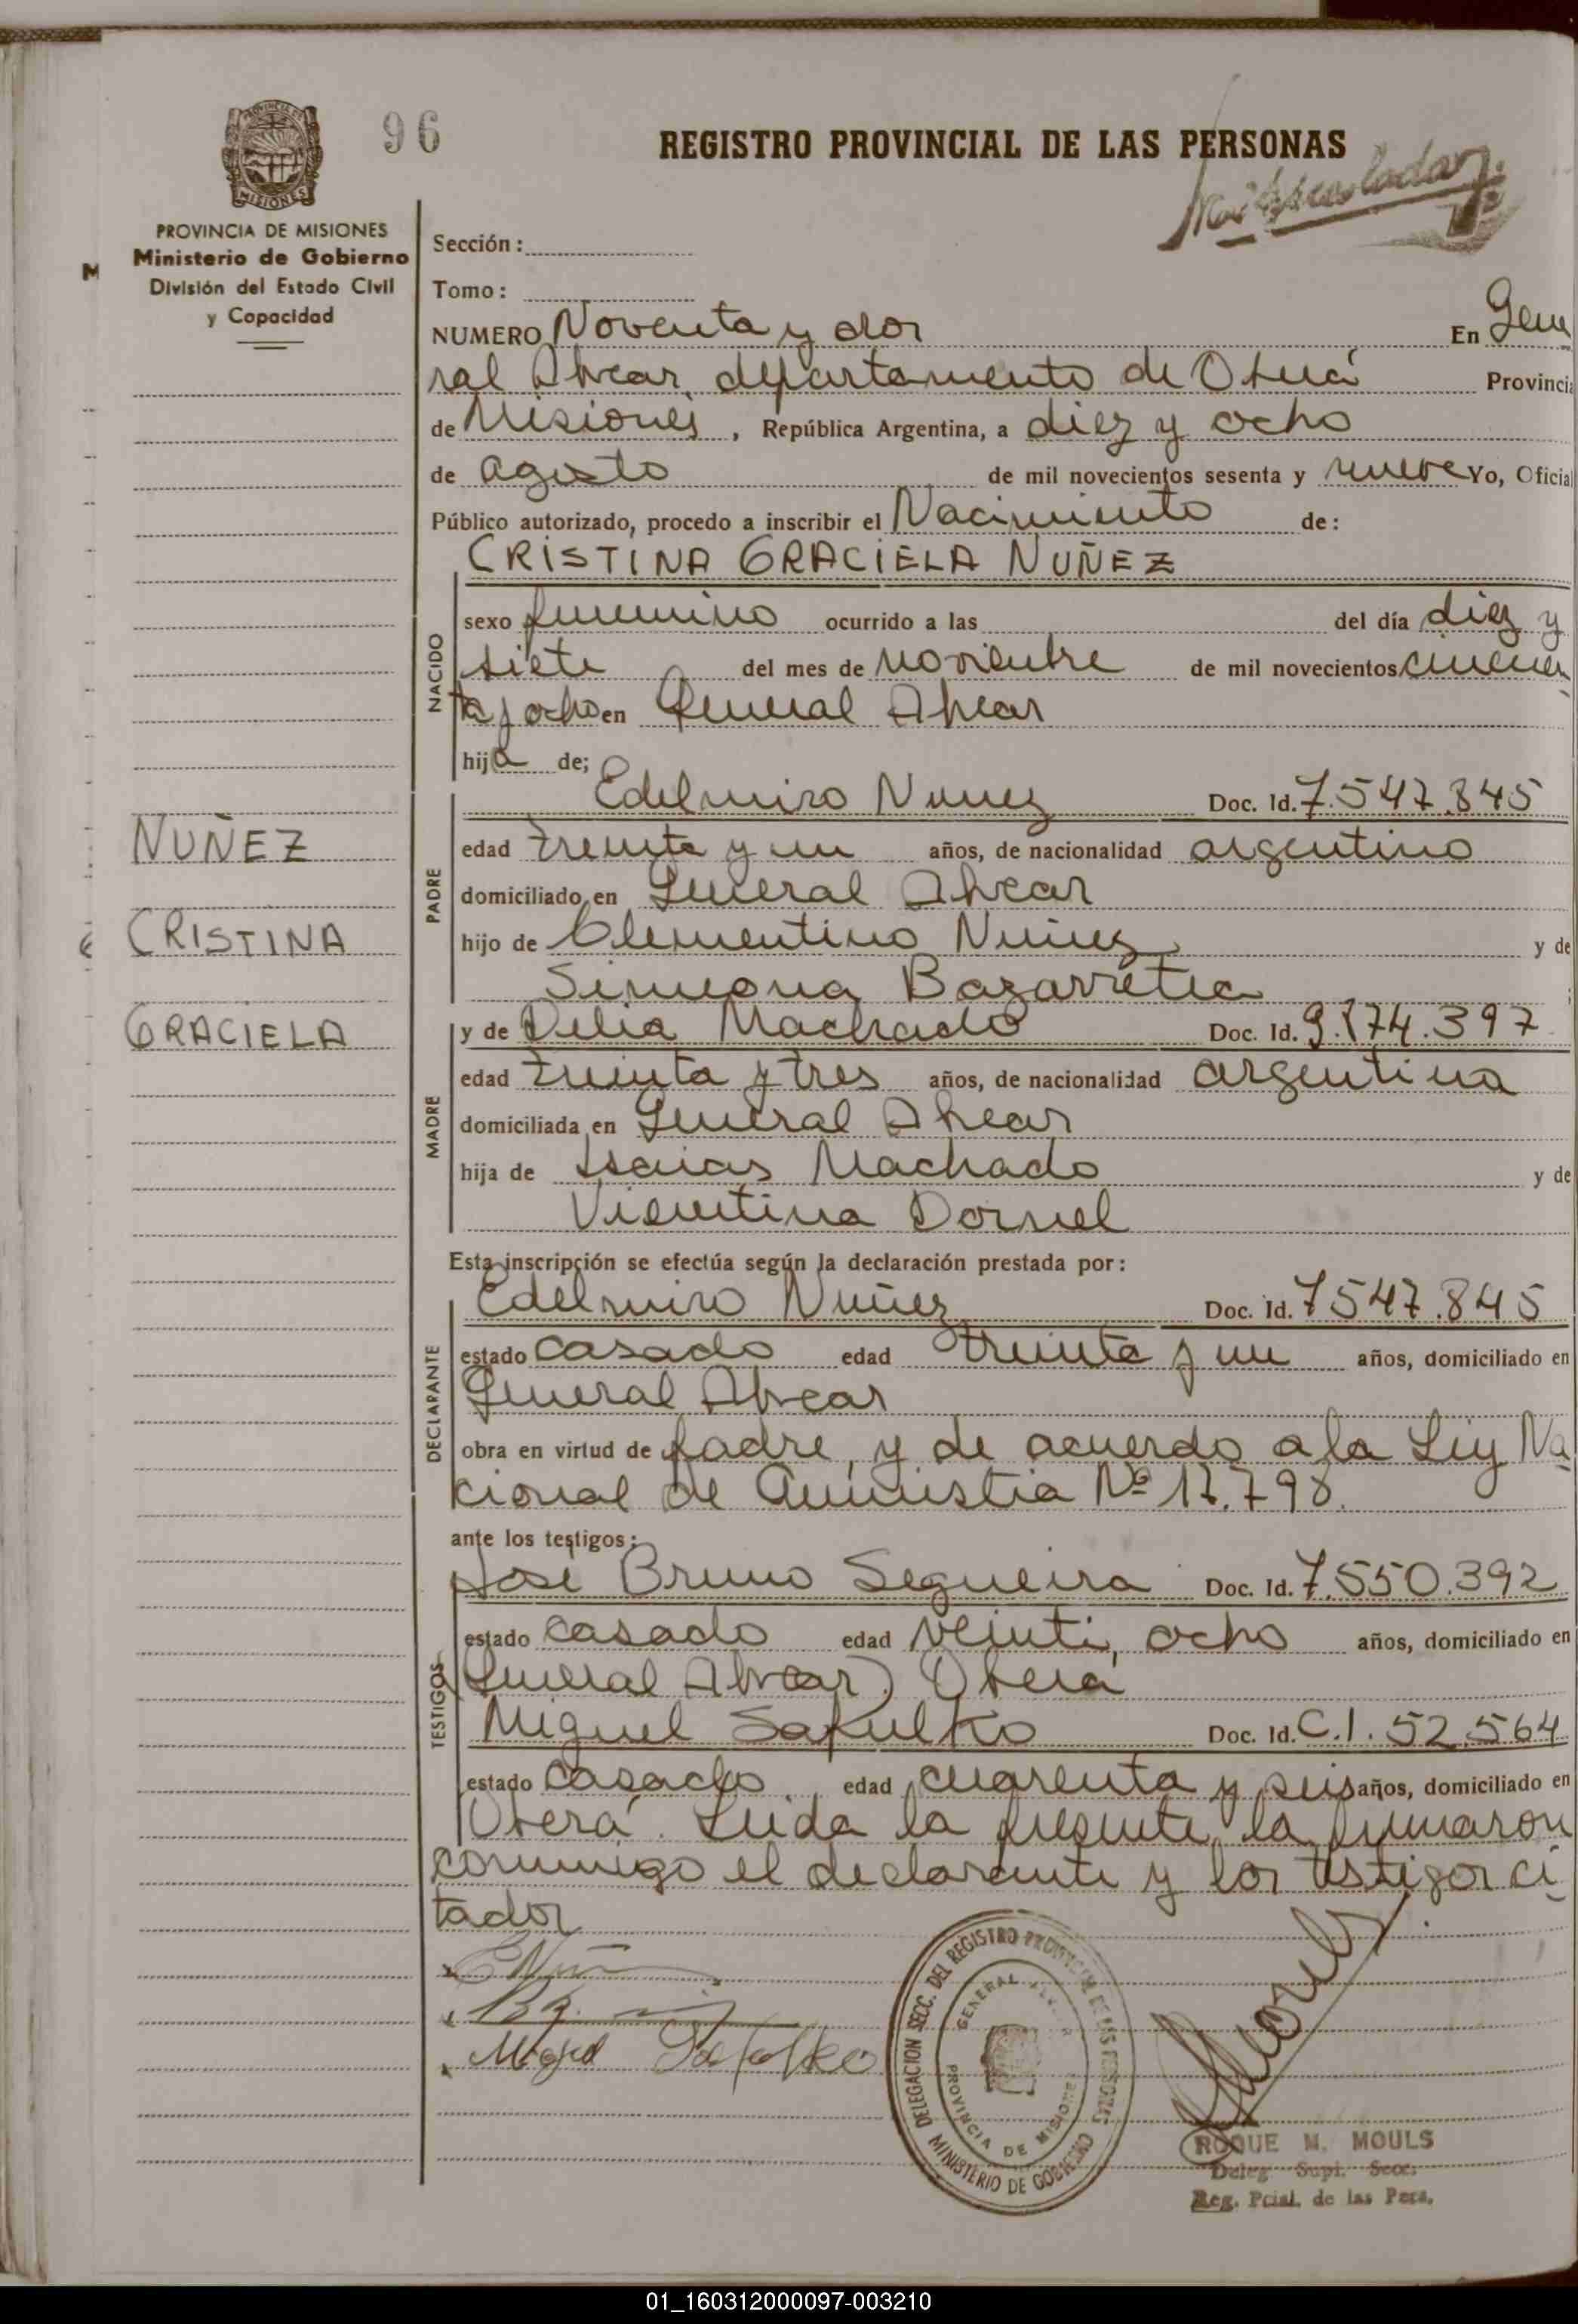 96
REGISTRO PROVINCIAL DE LAS PERSONAS
PROVINCIA DE MISIONES
Ministerio de Gobierno
División del Estado Civil
y Capacidad
M
Sección:
Tomo:
NUMERO Noventa y dos En Gene
ral Alvear departamento de Oberá Provincia
de Misiones, República Argentina, a diez y ocho
de agosto de mil novecientos sesenta y nueve Yo, Oficial
Público autorizado, procedo a inscribir el Nacimiento de:
CRISTINA GRACIELA NUÑEZ
NACIDO
sexo femenino ocurrido a las del día diez y
siete del mes de noviembre de mil novecientos cincuen
ta y ocho en General Alvear
hija de;
NUÑEZ
CRISTINA
GRACIELA
PADRE
Edelmiro Nuñez Doc. Id. 7.547.845
edad treinta y un años, de nacionalidad argentino
domiciliado en General Alvear
hijo de Clementino Nuñez y de
Simeona Bazarretea
MADRE
y de Delia Machado Doc. Id. 9.174.397
edad treinta y tres años, de nacionalidad argentina
domiciliada en General Alvear
hija de Isaias Machado y de
Vicentina Dornel
Esta inscripción se efectúa según la declaración prestada por:
DECLARANTE
Edelmiro Nuñez Doc. Id. 7547.845
estado casado edad treinta y un años, domiciliado en
General Alvear
obra en virtud de padre, y de acuerdo a la Ley Na
cional de Amnistia Nº 17.798.
ante los testigos:
TESTIGOS
José Bruno Segueira Doc. Id. 7.550.392
estado casado edad veinti ocho años, domiciliado en
General Alvear) Oberá
Miguel Safulko Doc. Id. C.I. 52.564
estado casado edad cuarenta y seis años, domiciliado en
Oberá. Leida la presente la firmaron
conmigo el declarante y los testigos ci
tados
E Nuñ
Miguel Safulko
DELEGACION SECC. DEL REGISTRO PROVINCIAL DE LAS PERSONAS
MINISTERIO DE GOBIERNO
GENERAL ALVEAR
PROVINCIA DE MISIONES
ROQUE M. MOULS
Deleg. Supl. Secc.
Reg. Pcial. de las Pers.
01_160312000097-003210